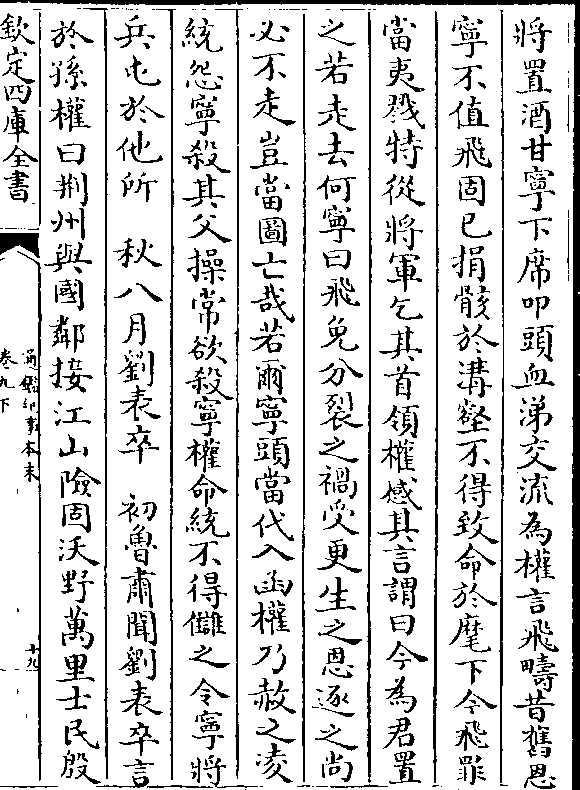 將置酒甘寧下席叩頭血涕交流為權言飛疇昔舊恩
寧不值飛固已捐骸於溝壑不得致命於麾下今飛罪
當夷戮特從將軍乞其首領權感其言謂曰今為君置
之若走去何寧曰飛免分裂之禍受更生之恩逐之尚
必不走豈當圖亡哉若爾寧頭當代入函權乃赦之凌
統怨寧殺其父操常欲殺寧權命統不得讎之令寧將
兵屯於他所　秋八月劉表卒　初魯肅聞劉表卒言
於孫權曰荆州與國鄰接江山險固沃野萬里士民殷
欽定四庫全書
通鑑紀事本末
卷九下
十九